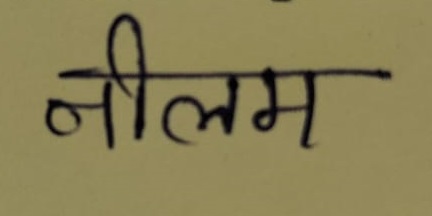 नीलम